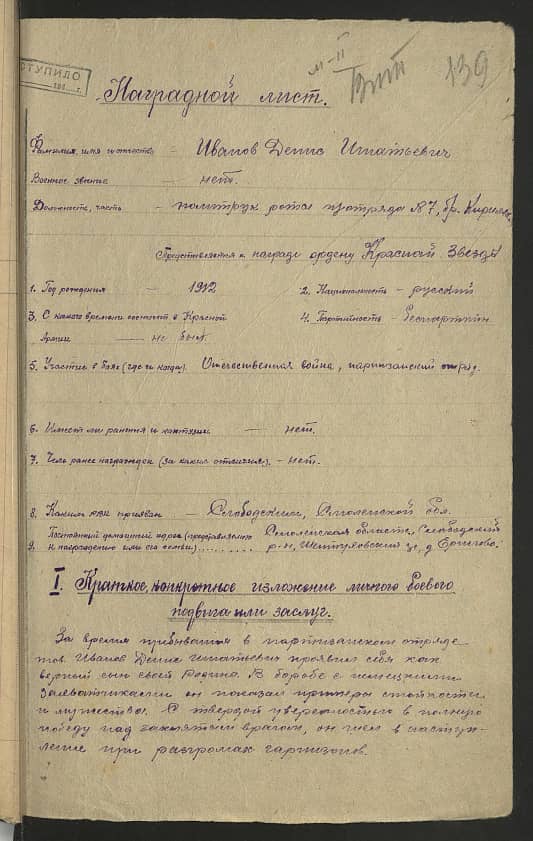 ОСТУПИЛО
194 г.
м-II
139
Наградной лист.
Фамилия, имя и отчество – Иванов Денис Игнатьевич
Военное звание – нет.
Должность, часть – политрук роты п/отряда №7, бр.
Представляется к награде ордену Красной Звезды
1. Год рождения – 1912
2. Национальность – русский
3. С какого времени состоит в Красной
Армии – не был.
4. Партийность – беспартийн.
5. Участие в боях (где и когда). Отечественная война, партизанский отряд.
6. Имеет ли ранения и контузии – нет.
7. Чем ранее награжден (за какие отличия). – нет.
8. Каким РВК призван – Слободским, Смоленской обл.
9. Постоянный домашний адрес (представляемого
к награждению или его семьи) Смоленская область, Слободский
р-н, с/с, д.
I. Краткое, конкретное изложение личного боевого
подвига или заслуг.
За время пребывания в партизанском отряде
тов. Иванов Денис Игнатьевич проявил себя как
верный сын своей Родины. В борьбе с немецкими
захватчиками он показал примеры стойкости
и мужества. С твердой уверенностью в полную
победу над врагом, он шел в наступ-
ление при разгромах гарнизонов.